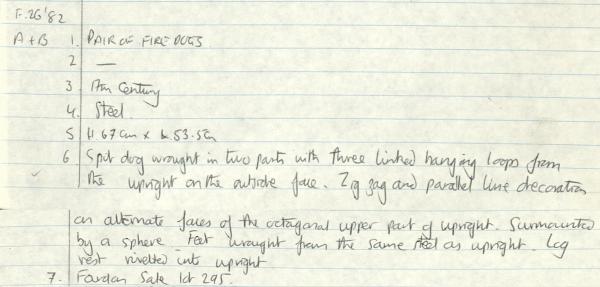 F.26'82
A+B 1. PAIR OF FIRE DOGS
2 —
3 17th Century
4. Steel.
5 H 67cm x L 53.5cm
6 Spit dog wrought in two parts with three linked hanging loops from
the upright on the outside face. Zig zag and parallel line decoration
on alternate faces of the octagonal upper part of upright. Surmounted
by a sphere. Feet wrought from the same steel as upright. Log
rest rivetted into upright
7. Fardon Sale lot 295.